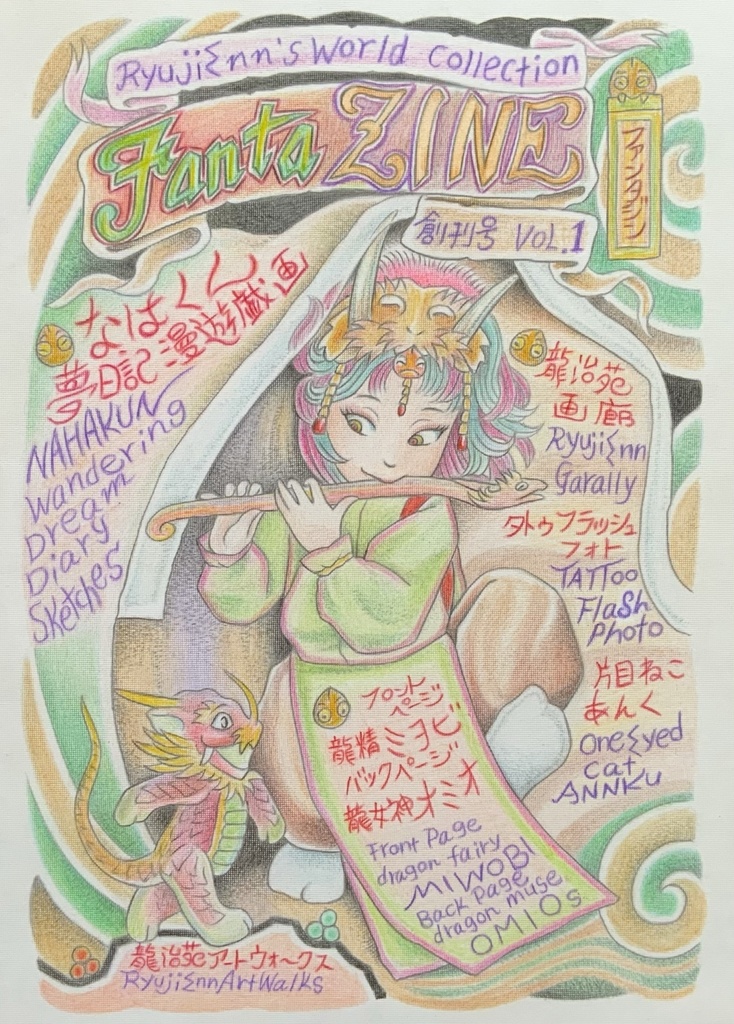 RyujiΣnn's World Collection
Fanta ZINE
ファンタジン
創刊号 VOL.1
なはくん
夢日記漫遊戯画
NAHAKUN
Wandering
Dream
Diary
Sketches
龍治苑
画廊
RyujiΣnn
Garally
タトゥフラッシュ
フォト
TATToo
FlaSh
Photo
片目ねこ
あんく
OneΣyed
Cat
ANNKU
フロント
ページ
龍精ミヲビ
バックページ
龍女神オミオ
Front Page
dragon fairy
MIWOBI
Back Page
dragon muse
OMIOs
龍治苑アートウォークス
RyujiΣnnArtWalks